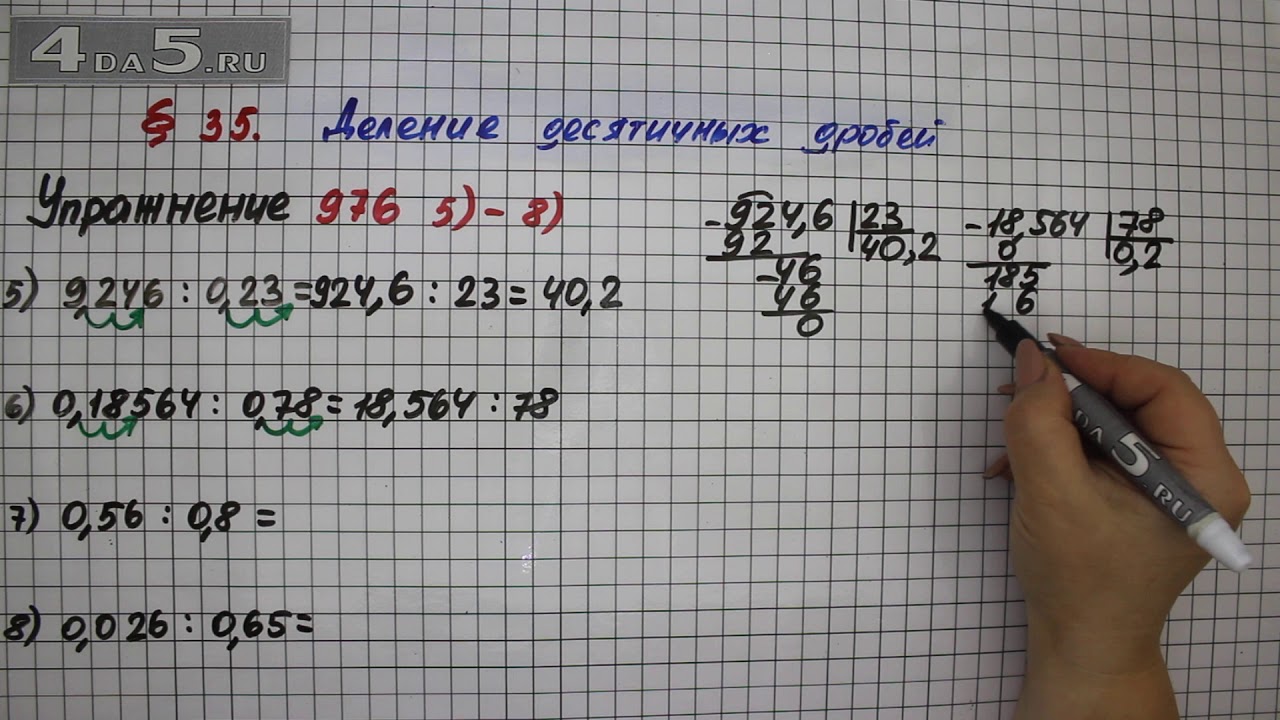 4DA5.RU
§ 35. Деление десятичных дробей
Упражнение 976 5)-8)
5) 9,246 : 0,23 = 924,6 : 23 = 40,2
6) 0,18564 : 0,78 = 18,564 : 78
7) 0,56 : 0,8 =
8) 0,026 : 0,65 =
-924,6 23
92 40,2
-46
46
0
-18,564 78
0 0,2
185
1 6
DA5.RU